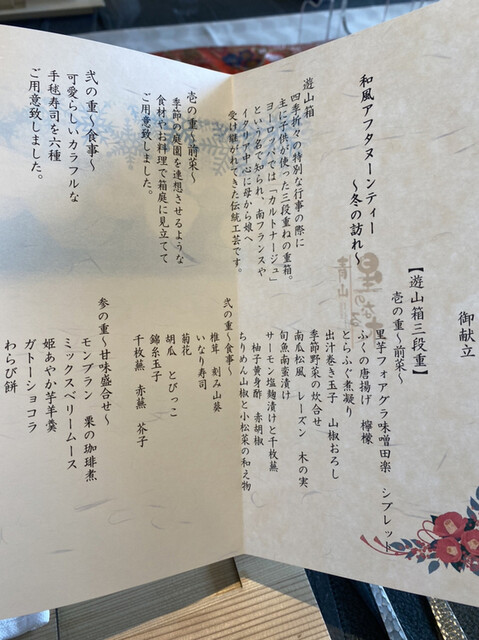 御献立
和風アフタヌーンティー
～冬の訪れ～
遊山箱
四季折々の特別な行事の際に
主に子供が使った三段重ねの重箱。
ヨーロッパでは「カルトナージュ」
という名で知られ、南フランスや
イタリア中心に母から娘へ
受け継がれてきた伝統工芸です。
壱の重～前菜～
季節の庭園を連想させるような
食材やお料理で箱庭に見立てて
ご用意致しました。
弐の重～食事～
可愛らしいカラフルな
手毬寿司を六種
ご用意致しました。
【遊山箱三段重】
壱の重～前菜～
里芋フォアグラ味噌田楽 シブレット
ふぐの唐揚げ 檸檬
とらふぐ煮凝り
出汁巻き玉子 山椒おろし
季節野菜の炊合せ
南瓜松風 レーズン 木の実
旬魚南蛮漬け
サーモン塩麹漬けと千枚蕪
柚子黄身酢 赤胡椒
ちりめん山椒と小松菜の和え物
弐の重～食事～
椎茸 刻み山葵
いなり寿司
菊花
胡瓜 とびっこ
錦糸玉子
千枚蕪 赤蕪 芥子
参の重～甘味盛合せ～
モンブラン 栗の珈琲煮
ミックスベリームース
姫あやか芋羊羹
ガトーショコラ
わらび餅
青山